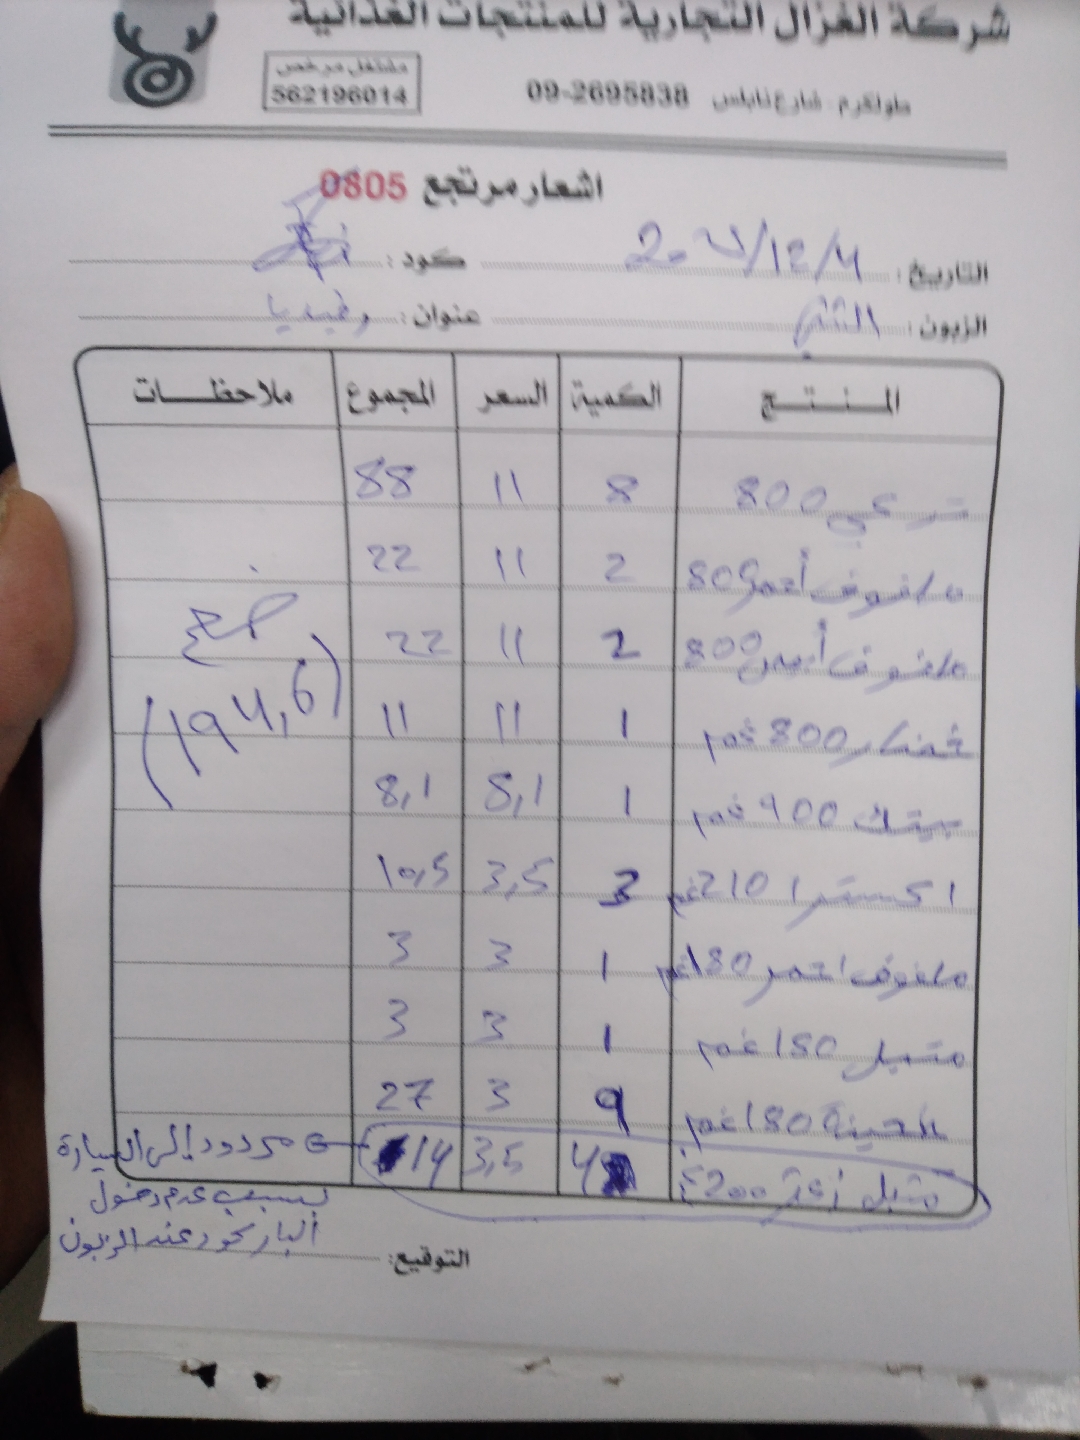 شركة الغزال التجارية للمنتجات الغذائية
طولكرم - شارع نابلس 09-2695838
مشتغل مرخص
562196014
اشعار مرتجع 0805
التاريخ: 4/12/ كود:
الزبون: عنوان: رفيديا
المنتج الكمية السعر المجموع ملاحظات
تركي 800 8 11 88
ملفوف أحمر 800 2 11 22
ملفوف أبيض 800 2 11 22
خضار 800 غم 1 11 11
900 غم 1 8,1 8,1
اكسترا 210 غم 3 3,5 10,5
ملفوف احمر 180 غم 1 3 3
متبل 180 غم 1 3 3
طحينة 180 غم 9 3 27
متبل زعتر 200 غ 4 3,5 14
(194,6)
مردود إلى السيارة
بسبب عدم دخول
الباركود عند الزبون
التوقيع: